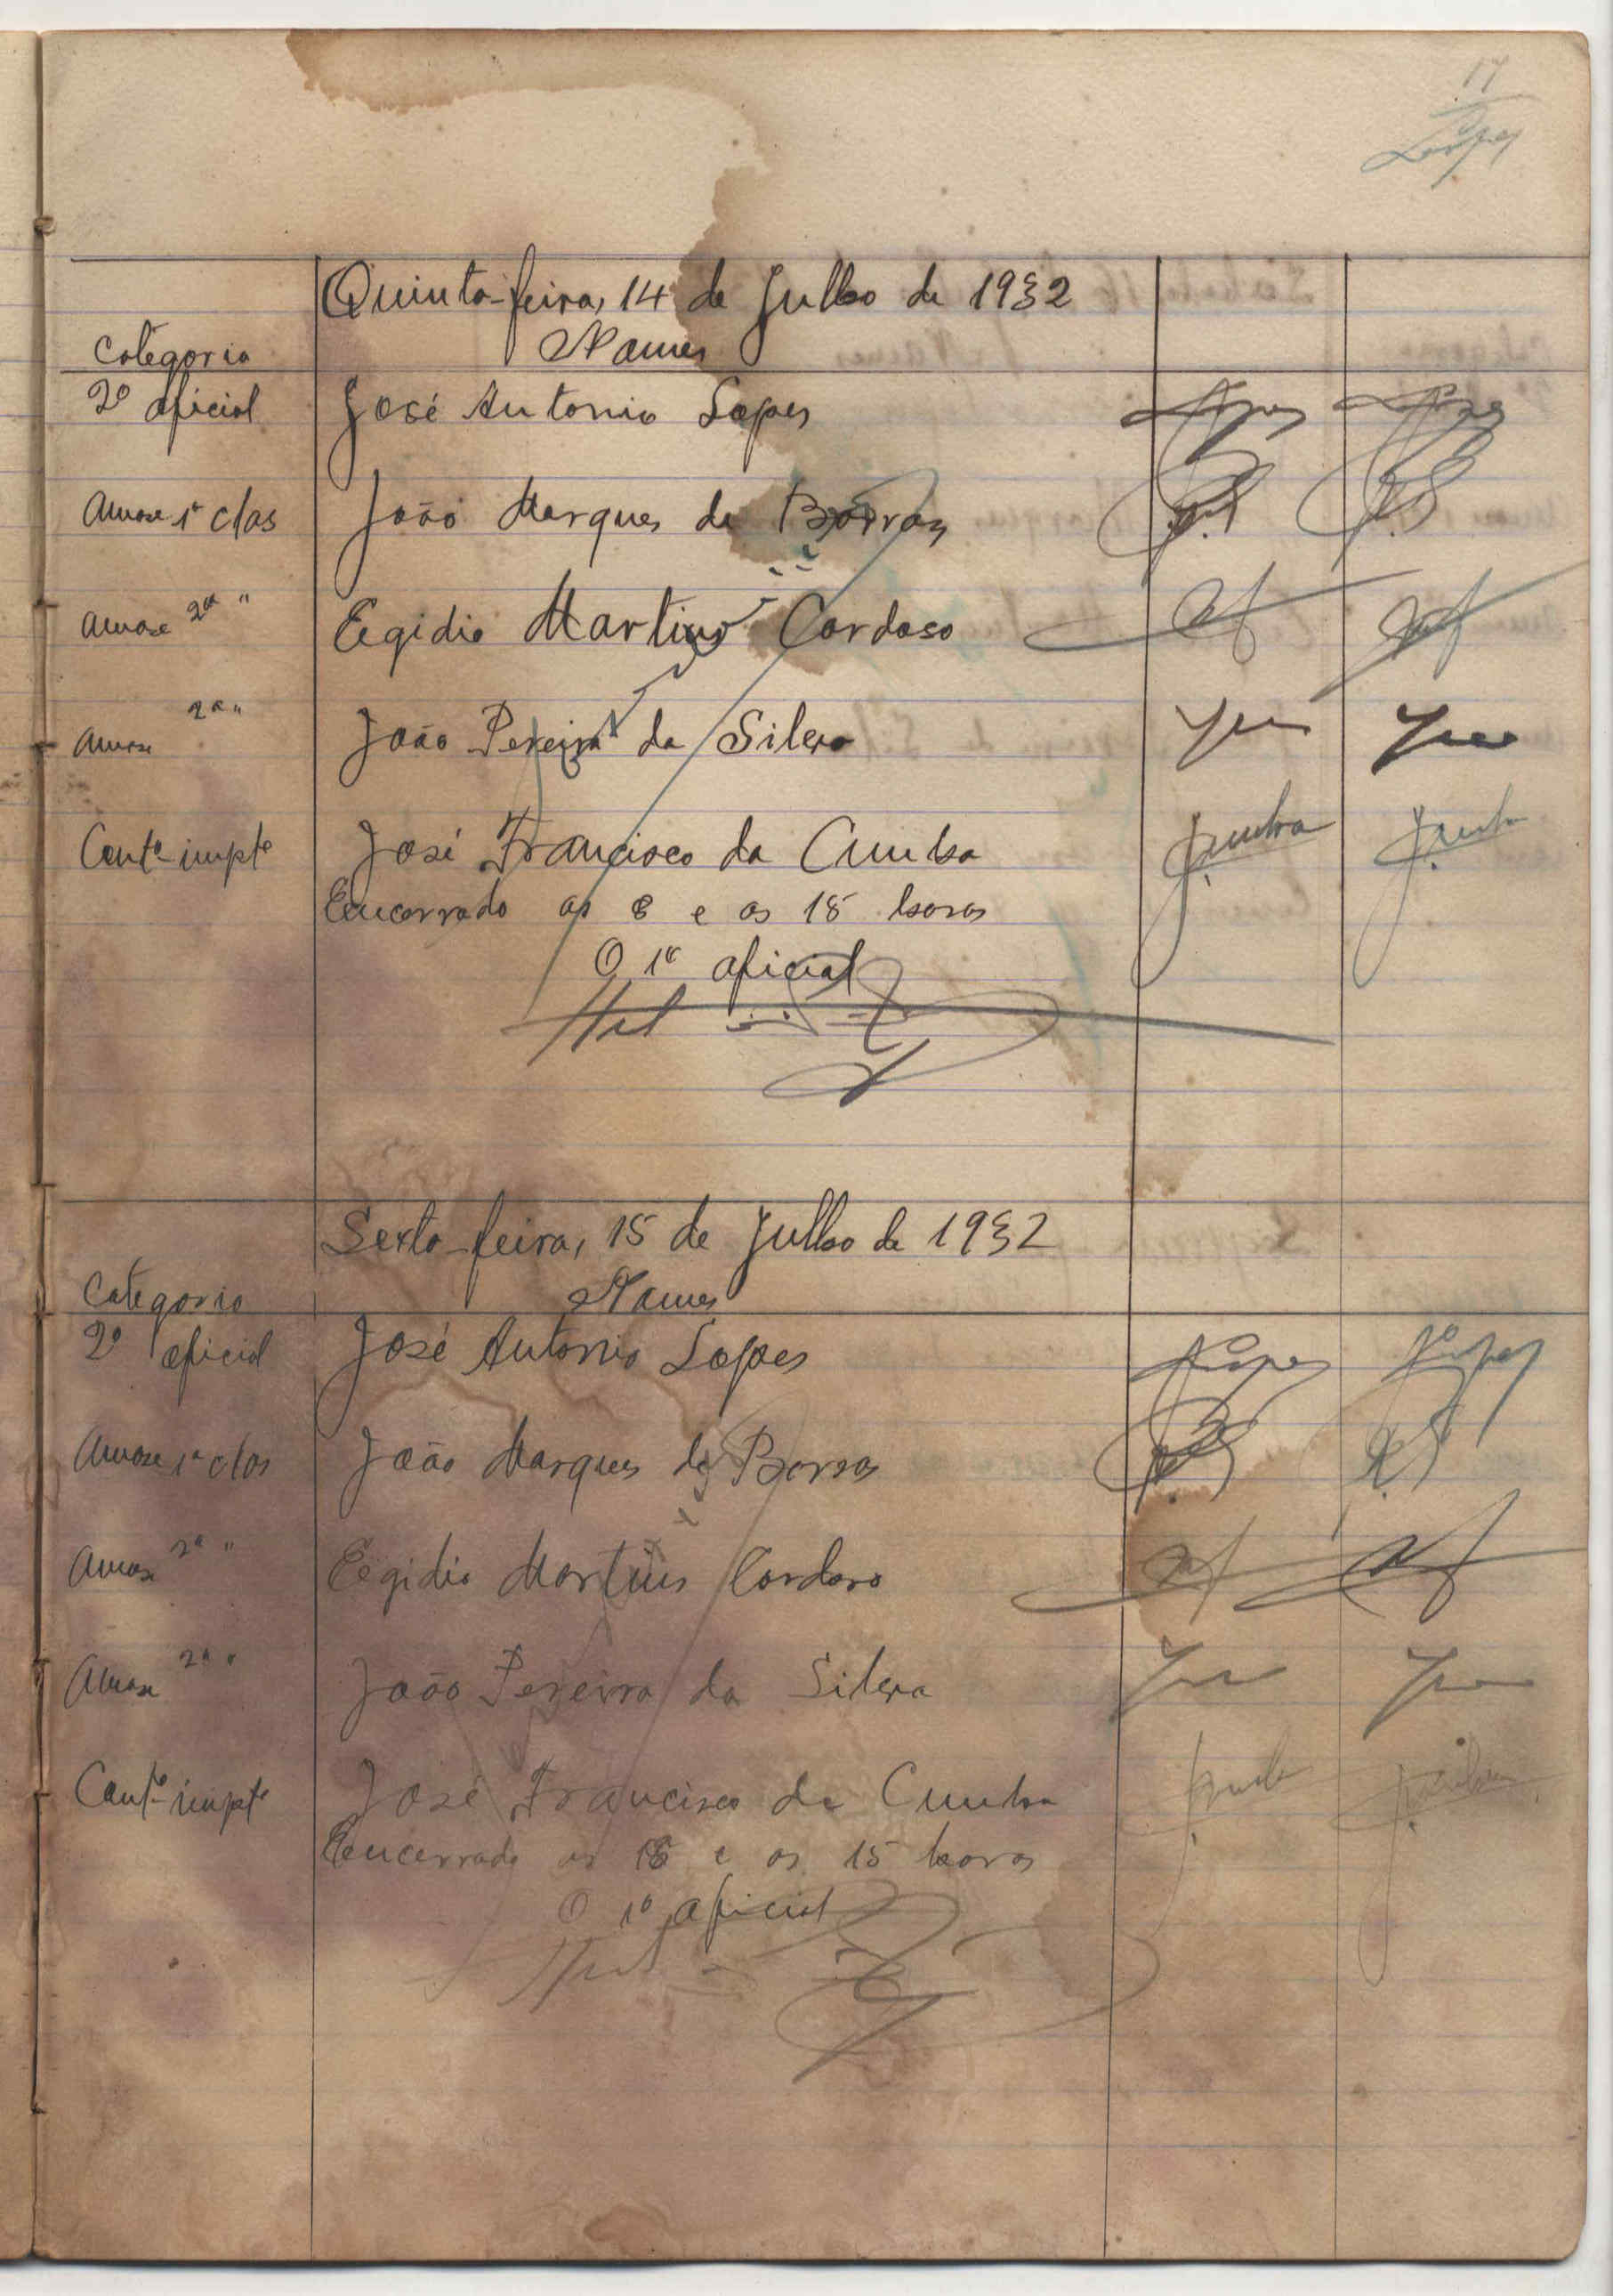 17
Lopes
Quinta-feira, 14 de Julho de 1932
Categoria Nomes
2º oficial José Antonio Lopes Lopes Lopes
1ª clas João Marques de Barros
2ª " Egidio Martins Cardoso
2ª " João Pereira da Silva
Contº impte José Francisco da Cunha JCunha JCunha
Encerrado as 8 e as 15 horas
O 1º oficial
Sexta-feira, 15 de Julho de 1932
Categoria Nomes
2º oficial José Antonio Lopes Lopes Lopes
1ª clas João Marques de Barros
2ª " Egidio Martins Cardoso
2ª " João Pereira da Silva
Contº impte José Francisco da Cunha JCunha JCunha
Encerrado as 8 e as 15 horas
O 1º oficial